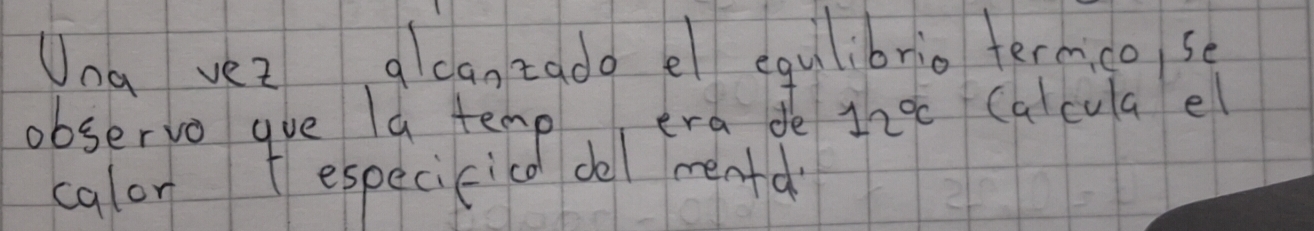 Una vez alcanzado el equilibrio termico, se
observo que la temp era de 12°c Calcula el
calor especifico del mental